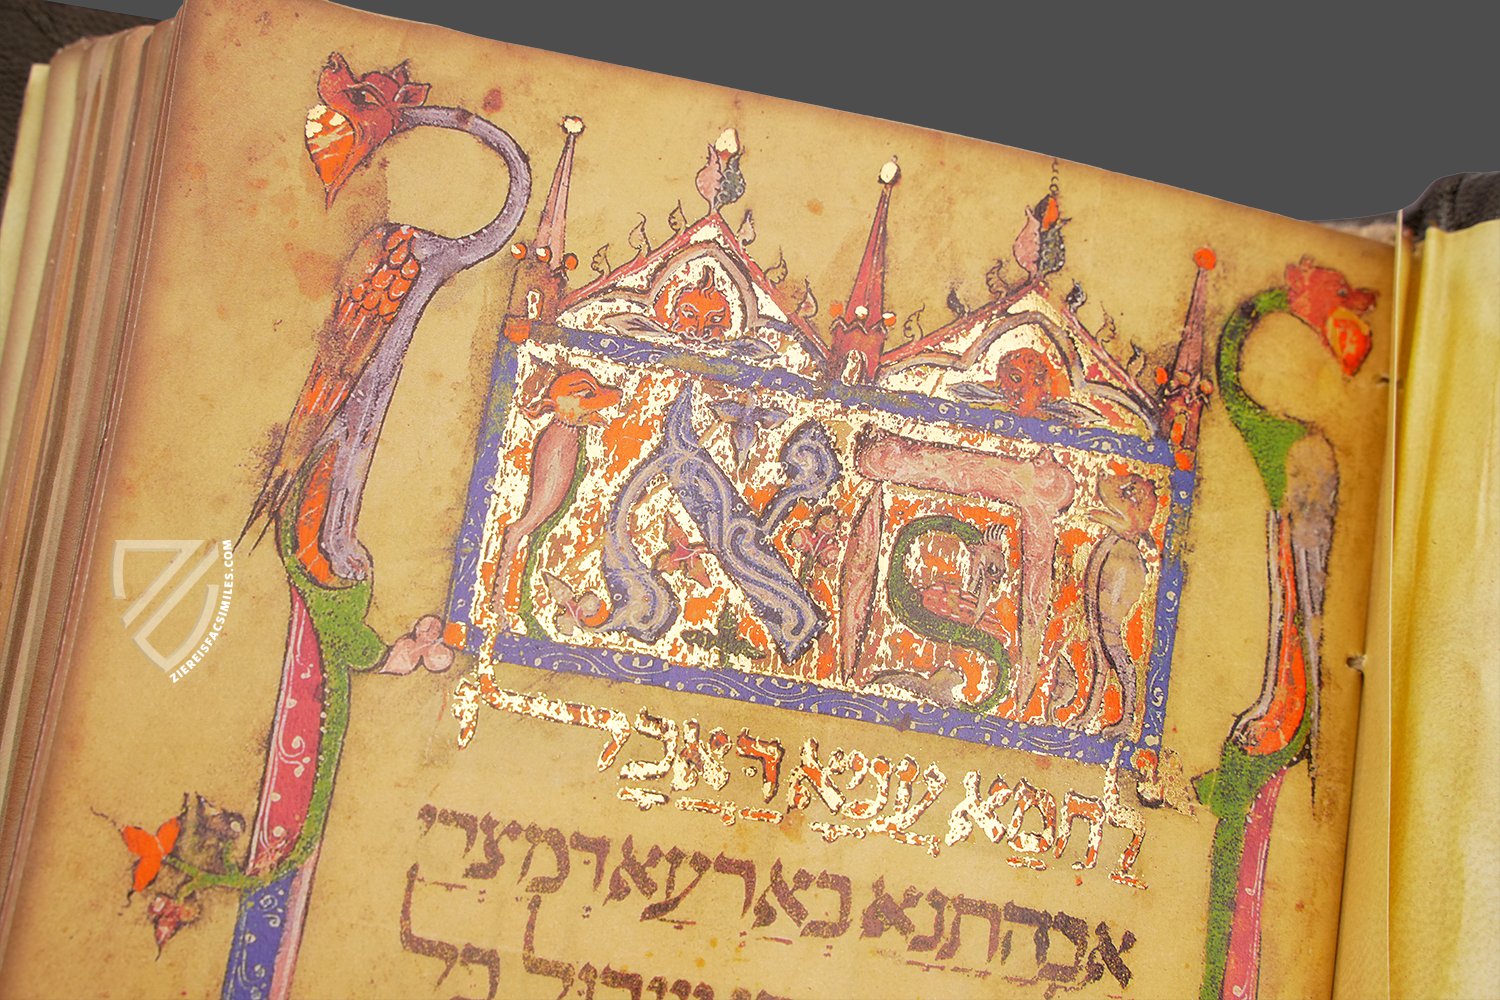 הא
לחמא עניא דאכלו
אבהתנא בארעא דמצרי
ZIEREISFACSIMILES.COM